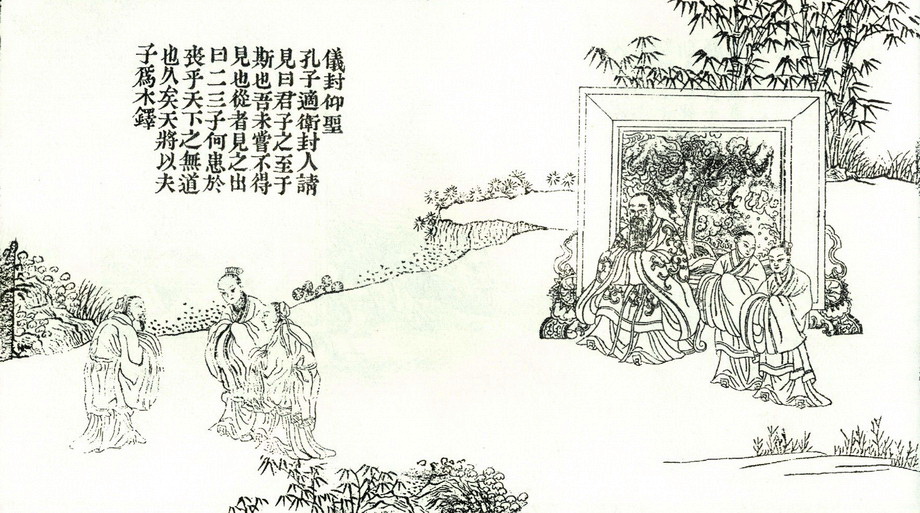 儀封仰聖
孔子適衛封人請
見曰君子之至于
斯也吾未嘗不得
見也從者見之出
曰二三子何患於
喪乎天下之無道
也久矣天將以夫
子爲木鐸